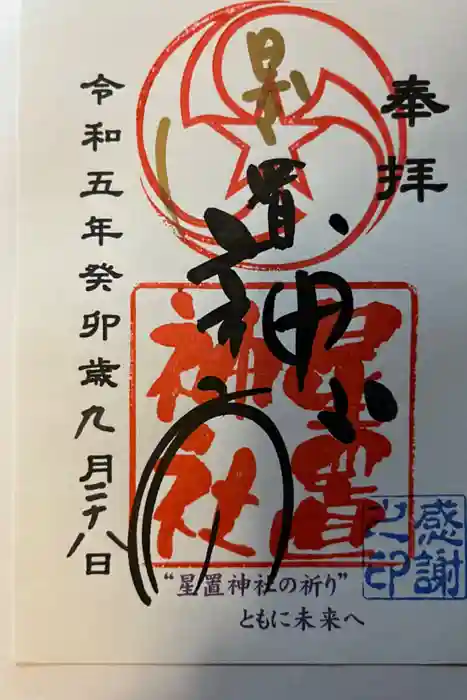 奉拝
星置神社
星置
神社
令和五年癸卯歳九月二十八日
感謝
之印
“星置神社の祈り”
ともに未来へ